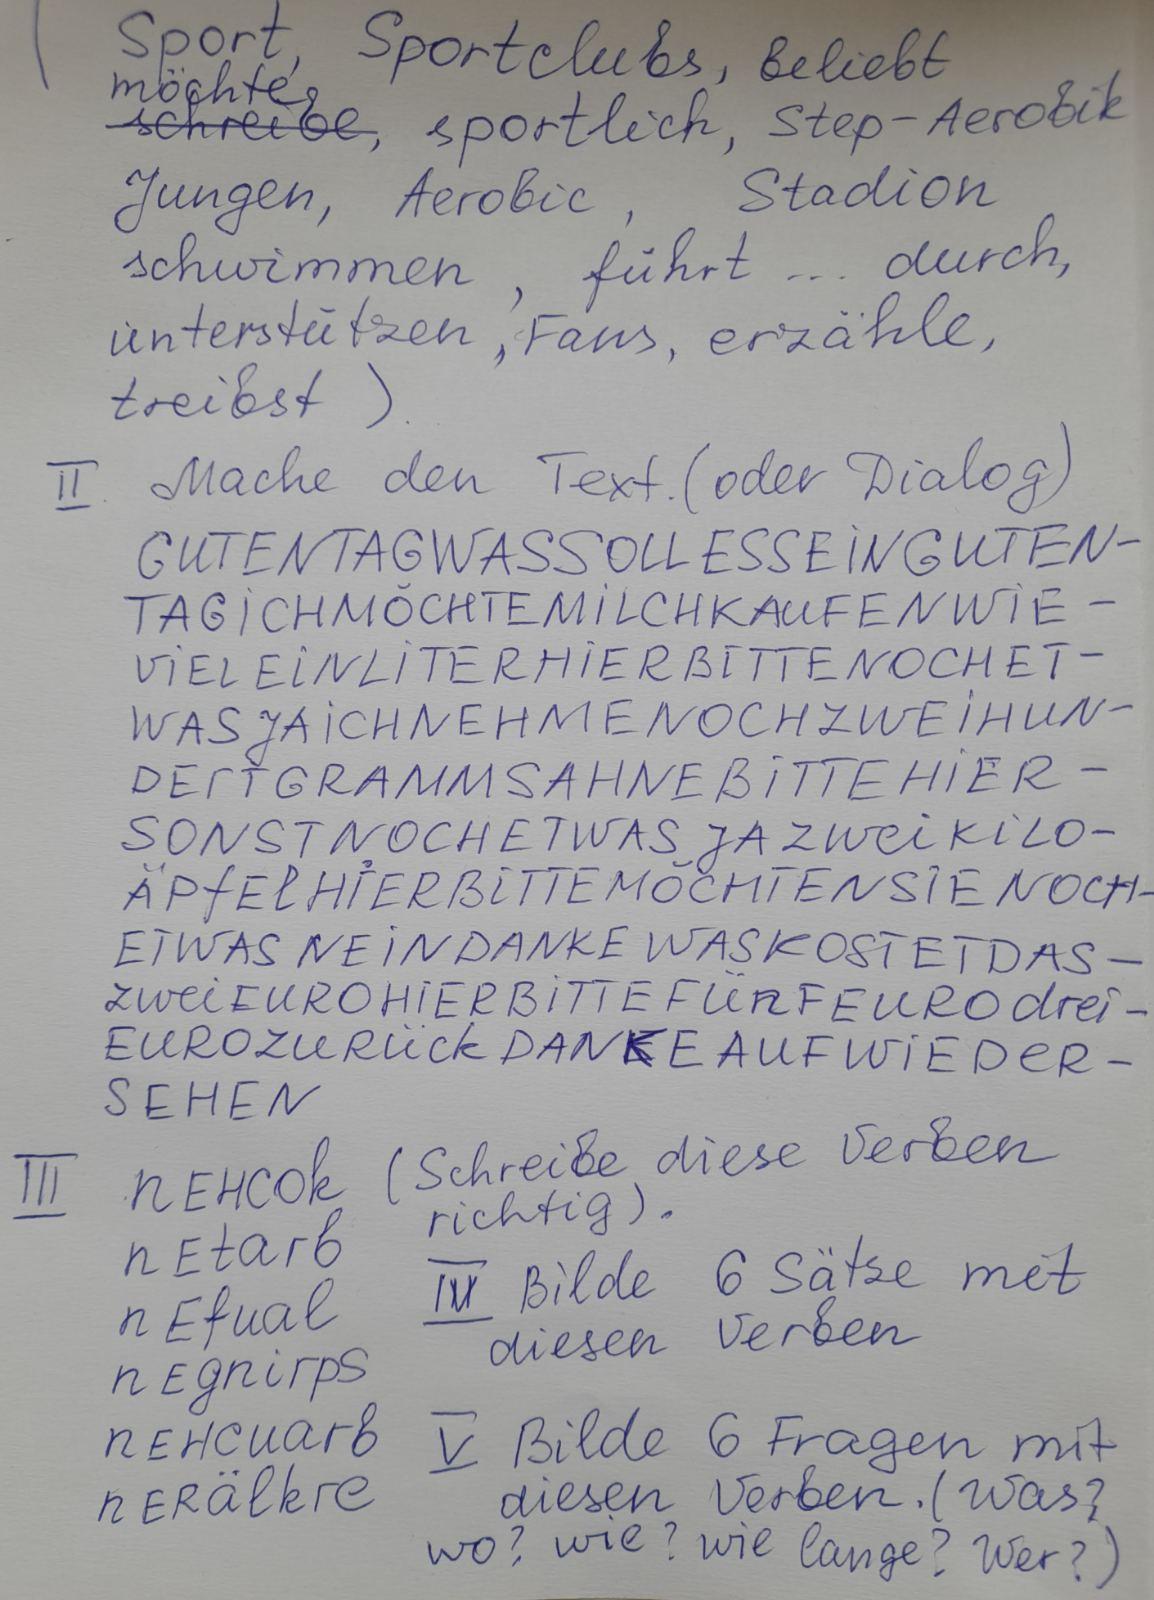 ( Sport, Sportclubs, beliebt
möchte,
schreibe, sportlich, Step-Aerobik
Jungen, Aerobic, Stadion
schwimmen, führt ... durch,
unterstützen, Fans, erzähle,
treibst ).
II. Mache den Text. (oder Dialog)
GUTENTAGWASSOLLESSEINGUTEN-
TAGICHMÖCHTEMILCHKAUFENWIE-
VIELEINLITERHIERBITTENOCHET-
WASJAICHNEHMENOCHZWEIHUN-
DERTGRAMMSAHNEBITTEHIER-
SONSTNOCHETWASJAZweiKILO-
ÄPfElHIERBITTEMÖCHTENSIENOCH-
ETWASNEINDANKEWASKOSTETDAS-
ZweiEUROHIERBITTEFÜnFEURODrei-
EUROZURückDANKEAUFWIEDeR-
SEHEN
III nEHCOk (Schreibe diese Verben
richtig).
nEtarb
nEfual
nEgnirps
nEHCuarb
nERälkre
IV Bilde 6 Sätze mit
diesen Verben
V Bilde 6 Fragen mit
diesen Verben. (Was?
wo? wie? wie lange? Wer?)